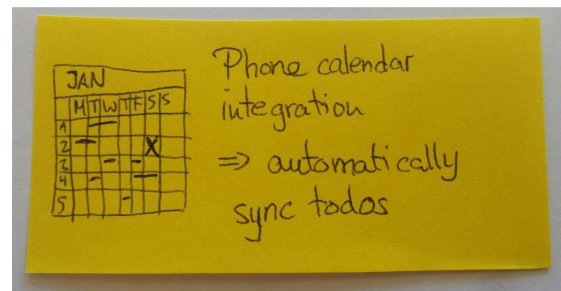 JAN
M T W T F S S
1
2 X
3
4
5
Phone calendar
integration
⇒ automatically
sync todos